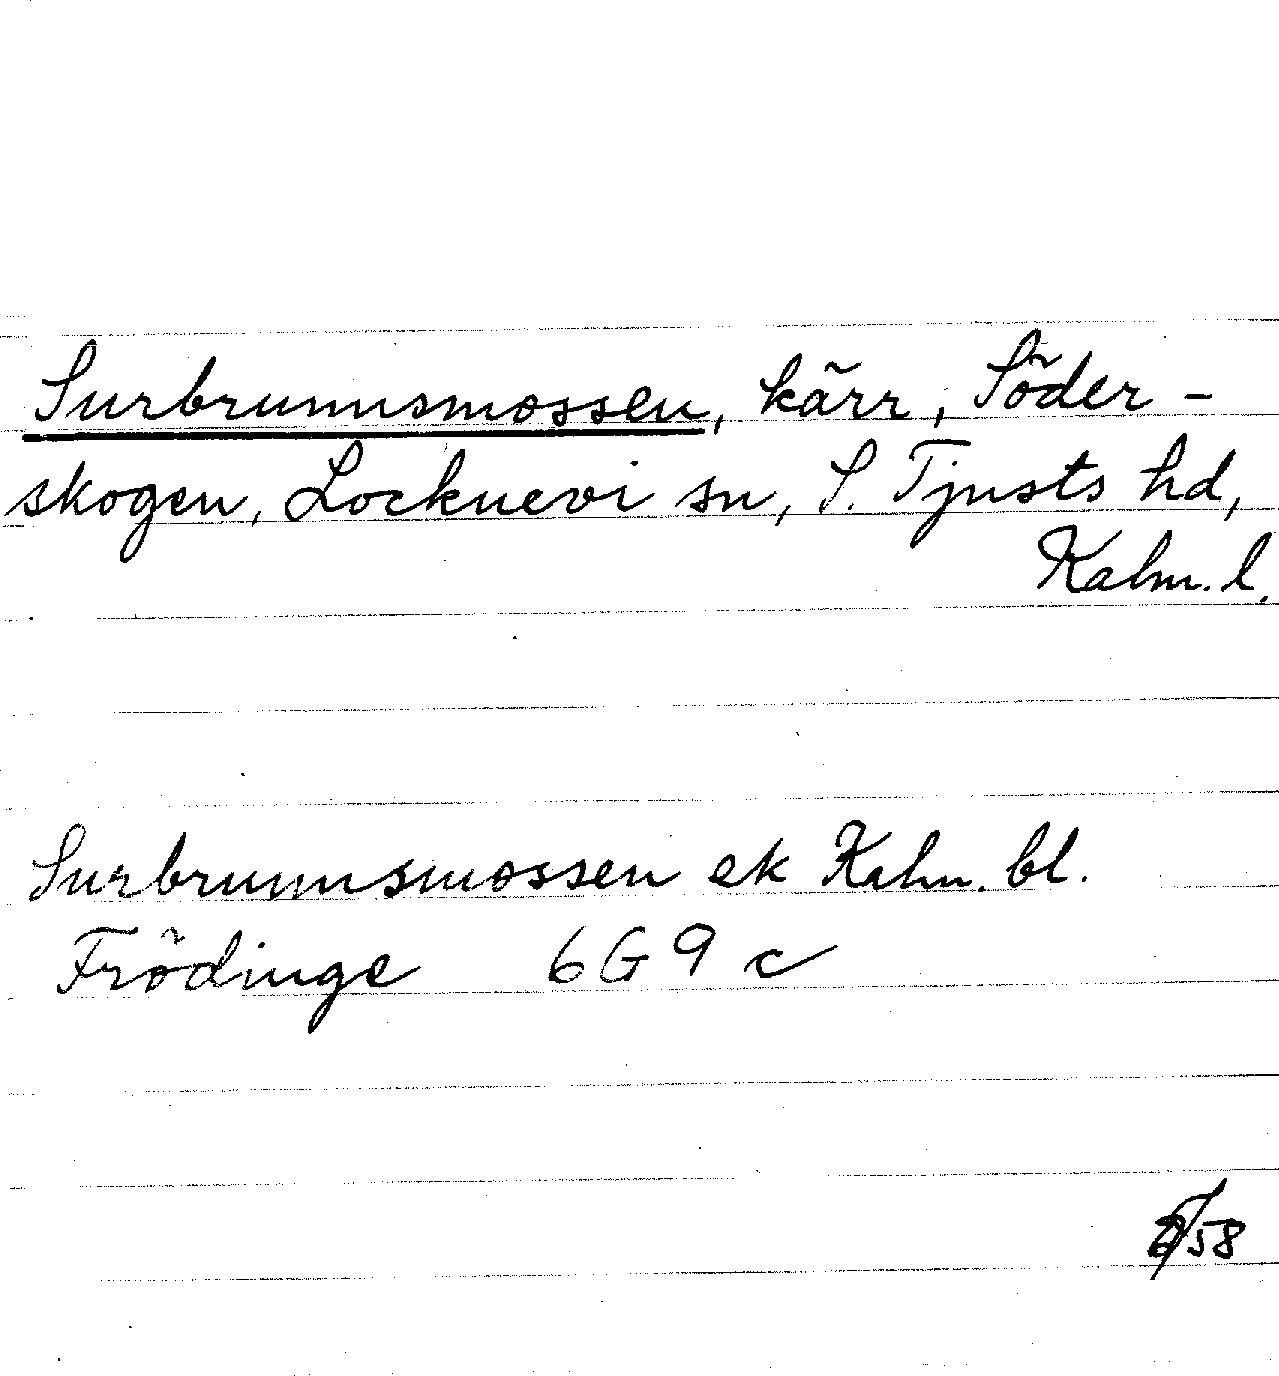 Surbrunnsmossen, kärr, Söder-
skogen, Locknevi sn, S. Tjusts hd,
Kalm. l.
Surbrunnsmossen ek Kalm. bl.
Frödinge 6G9c
58